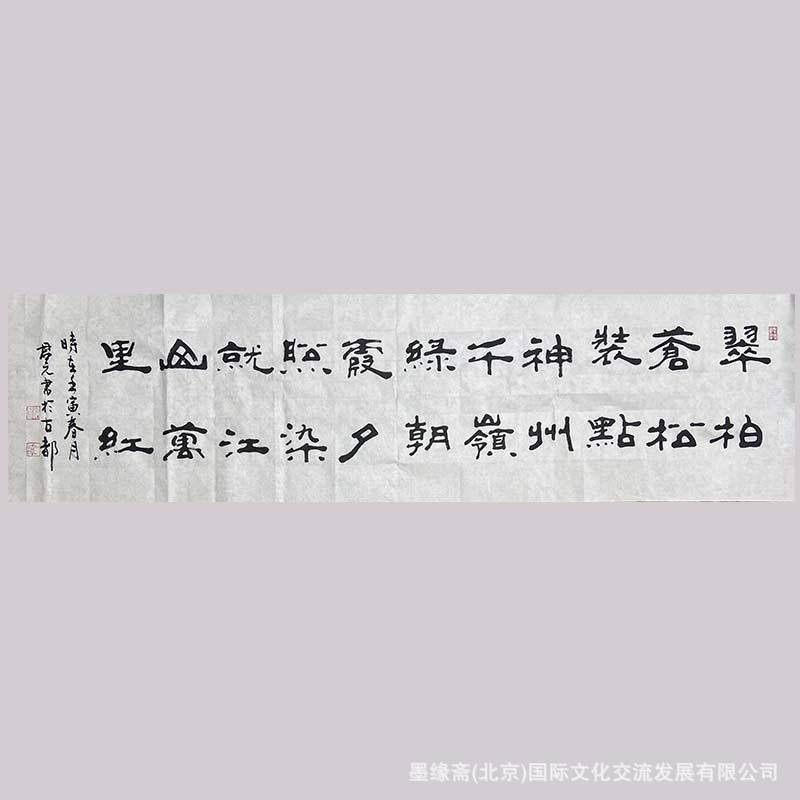 翠柏
蒼松
裝點
神州
千嶺
綠朝
霞夕
照染
就江
山萬
里紅
時在壬寅春月
元書於古都
墨缘斋(北京)国际文化交流发展有限公司